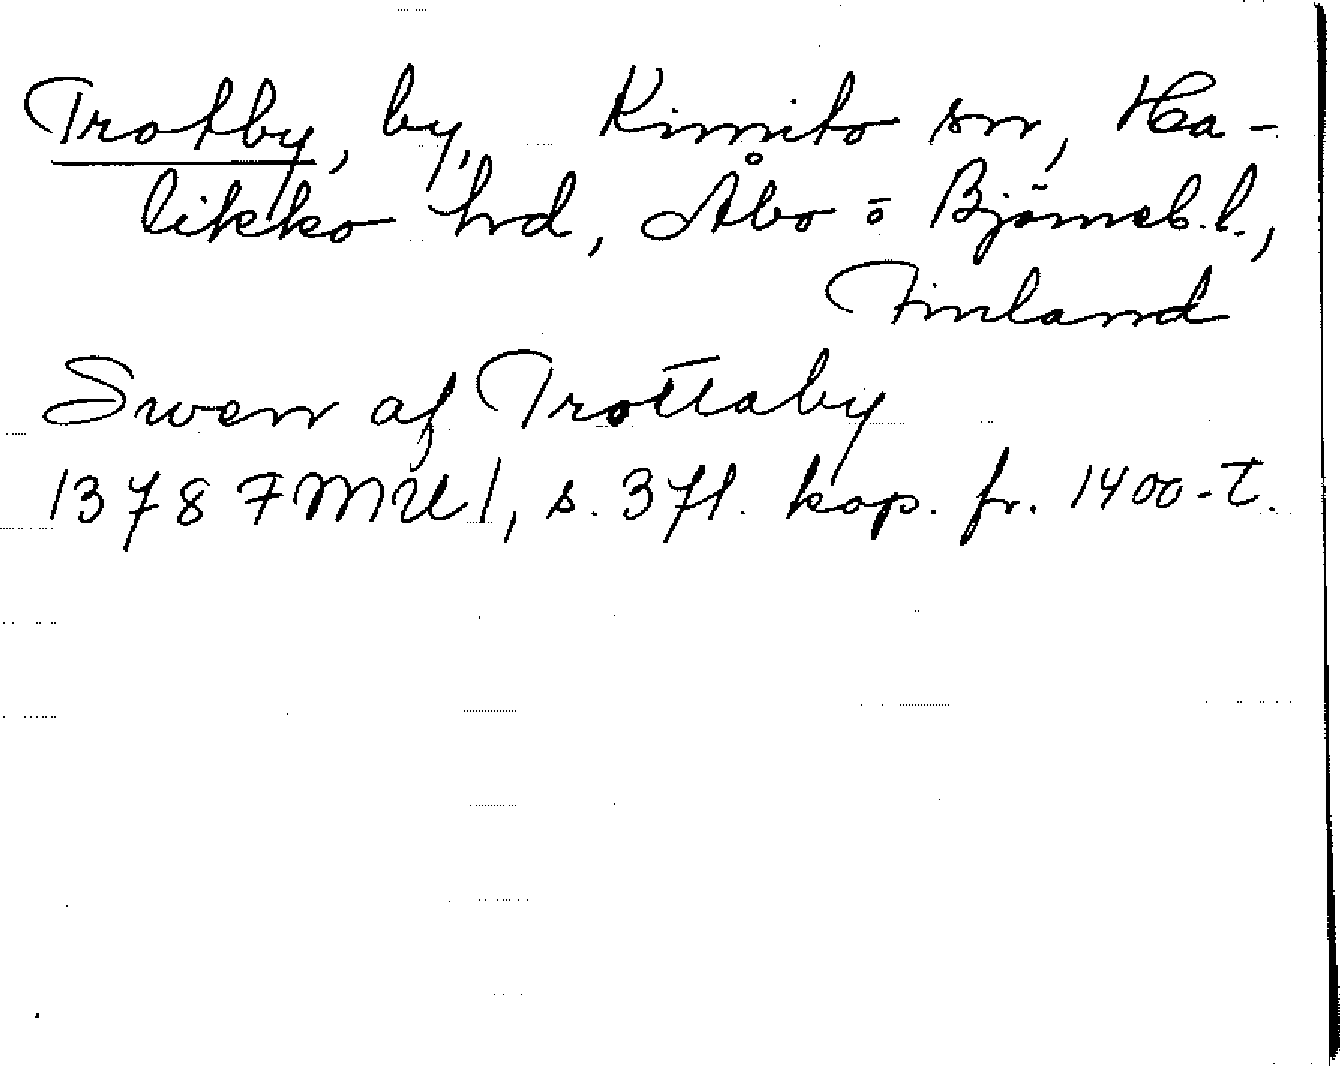 Trotby, by, Kimito sn, Ha-
likko hd, Åbo o Björneb.l.,
Finland
Swen af Trottaby
1378 FMU 1, s. 371. kop. fr. 1400-t.